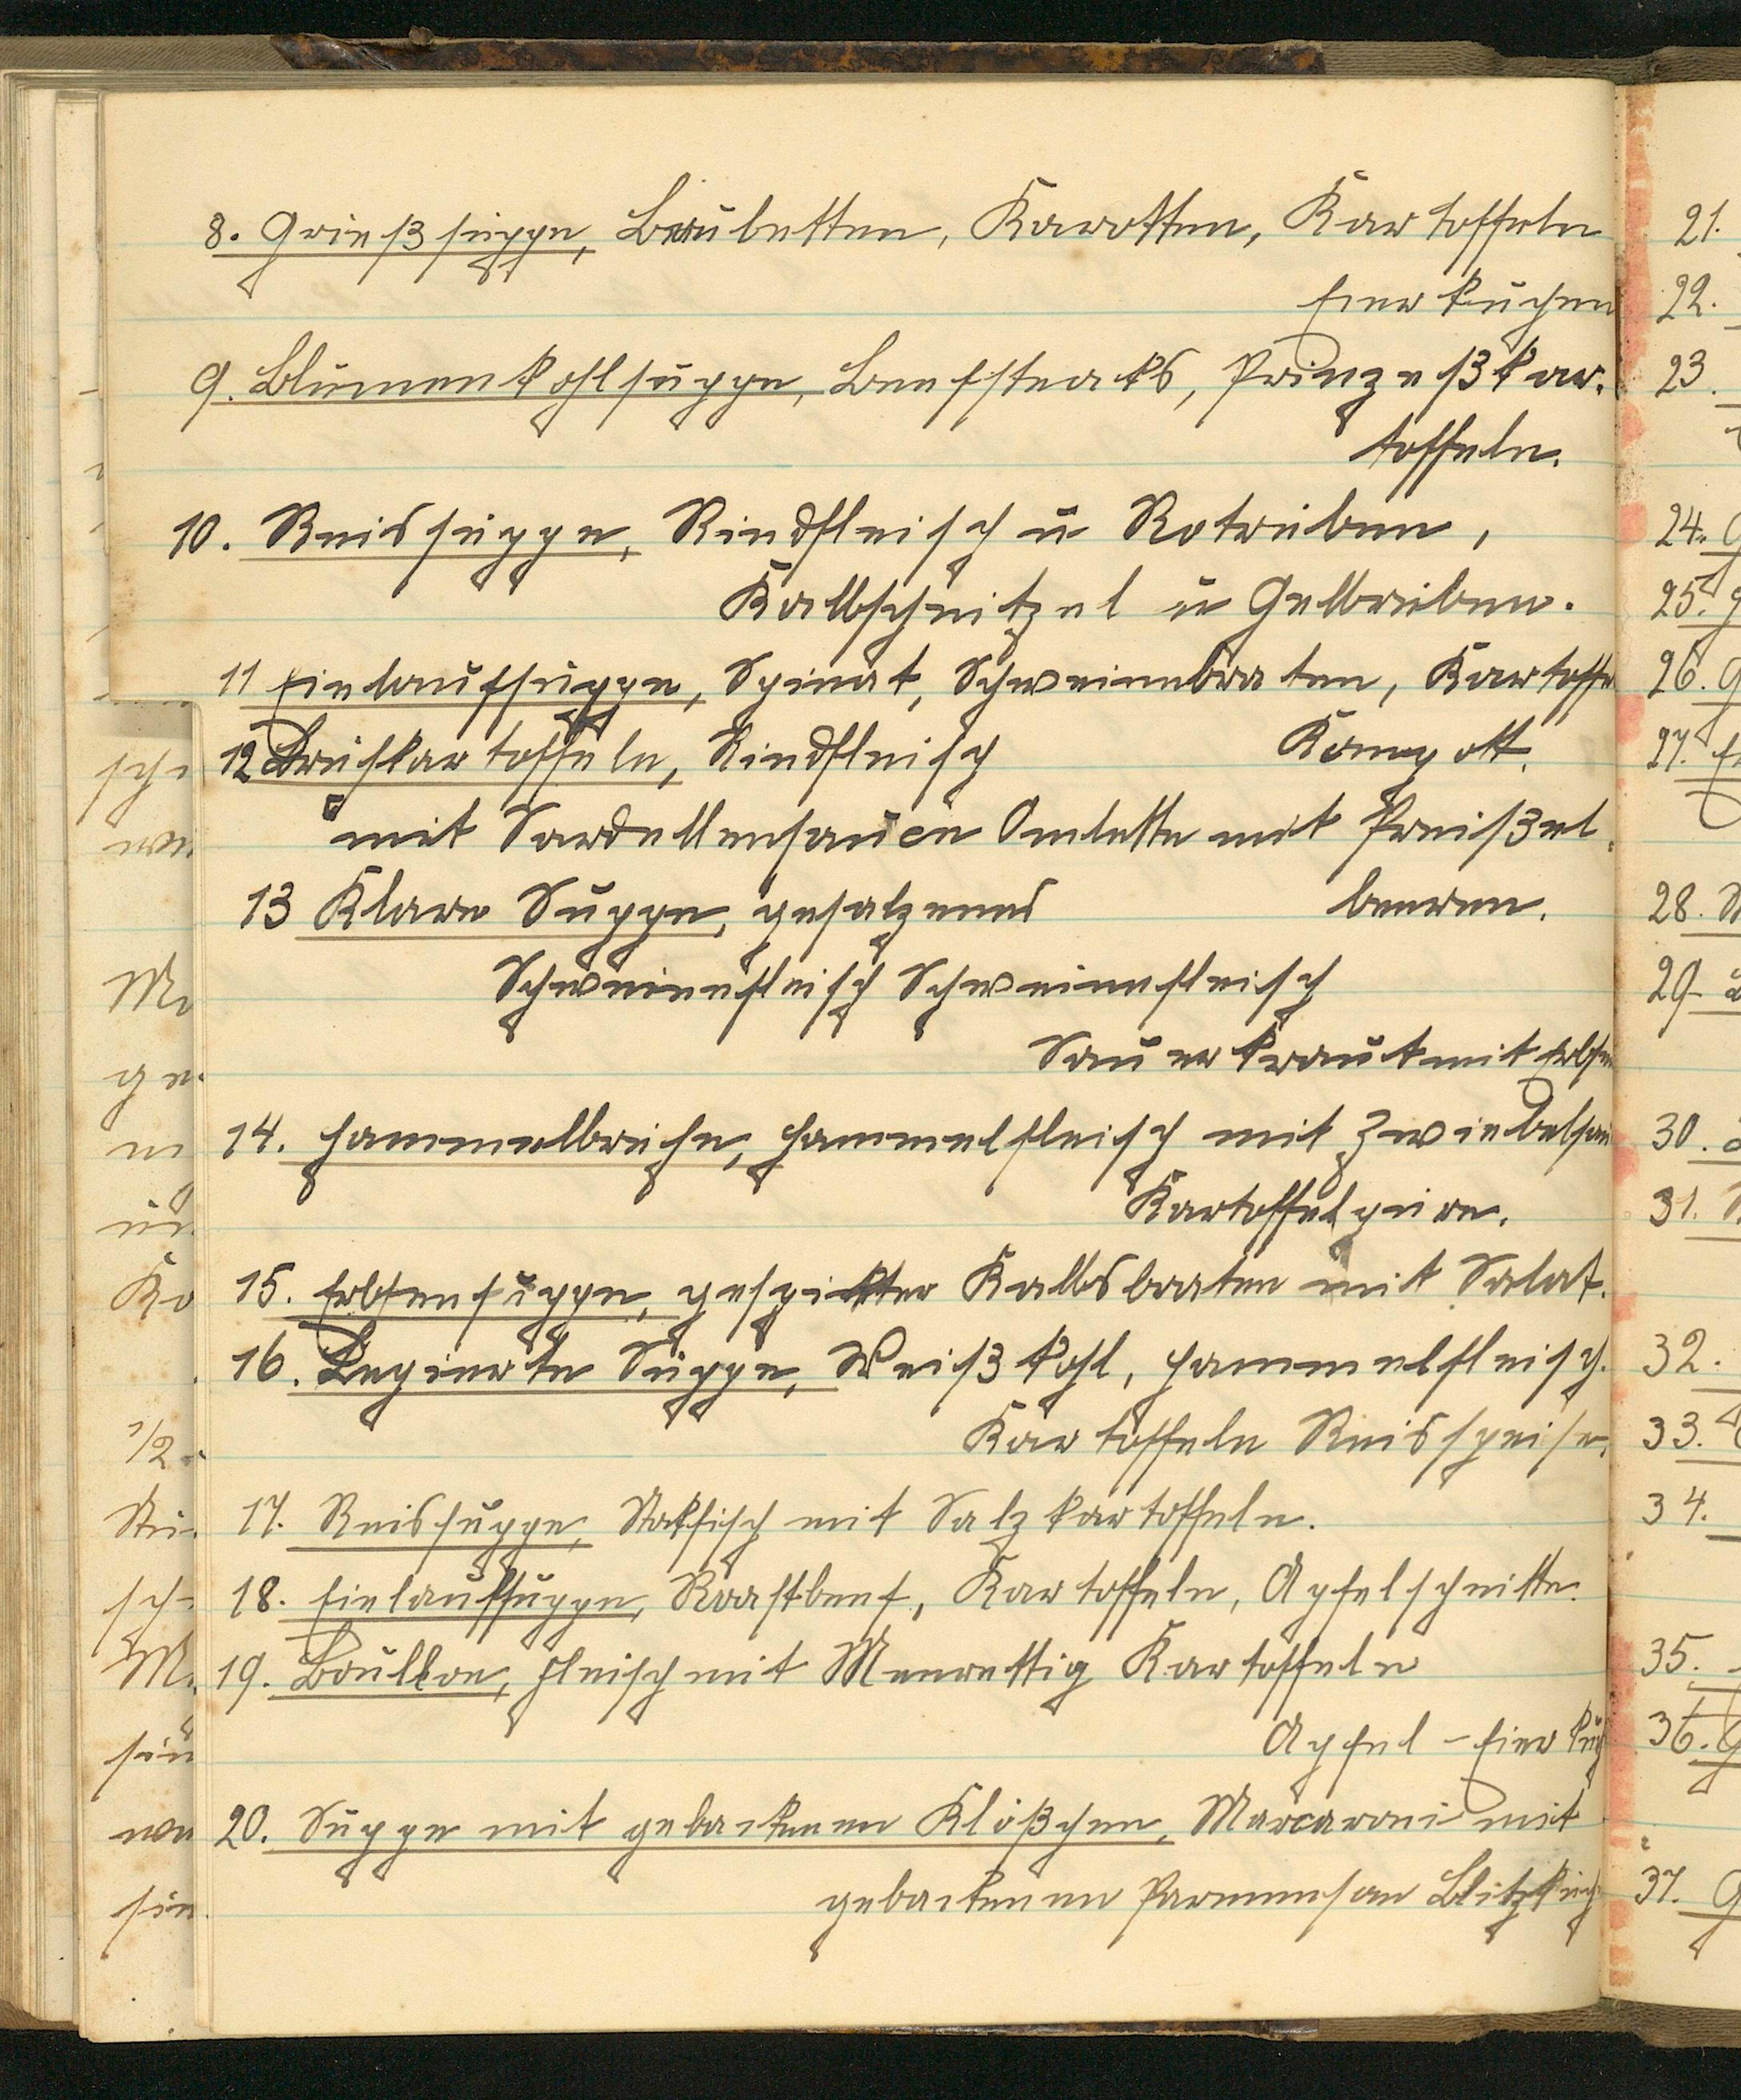 8. Grießsuppe, Karotten, Kartoffeln
Eierkuchen
9. Blumenkohlsuppe, Beefsteaks, Prinzeßkar-
toffeln.
10. Reissuppe, Rindfleisch u Rotrüben,
Kalbschnitzel u Gelbrüben.
11 Einlaufsuppe, Spinat, Schweinebraten, Kartoffe
Kompott.
12 Brühkartoffeln, Rindfleisch
mit Sardellensauce Omlette mit Preißel-
beeren.
13 Klare Suppe, gesalzenes
Schweinefleisch Schweinefleisch
Sauerkraut mit Erbsen
14. Hammelbrühe, Hammelfleisch mit Zwiebelsau
Kartoffelpüree.
15. Erbsensuppe, gespickter Kalbsbraten mit Salat.
16. Legierte Suppe, Weißkohl, Hammelfleisch.
Kartoffeln Reisspeise.
17. Reissuppe, Stokfisch mit Salzkartoffeln.
18. Einlaufsuppe, Roastbeef, Kartoffeln, Apfelschnitte.
19. Boullon, Fleisch mit Meerettig Kartoffeln
Apfel-Eierkuch
20. Suppe mit gebackenen Klößchen, Marcaroni mit
gebackenem Parmesan Blitzkuch
21.
22.
23.
24. G
25. G
26. G
27. Ei
28.
29.
30.
31.
32.
33.
34.
35.
36. G
37. G